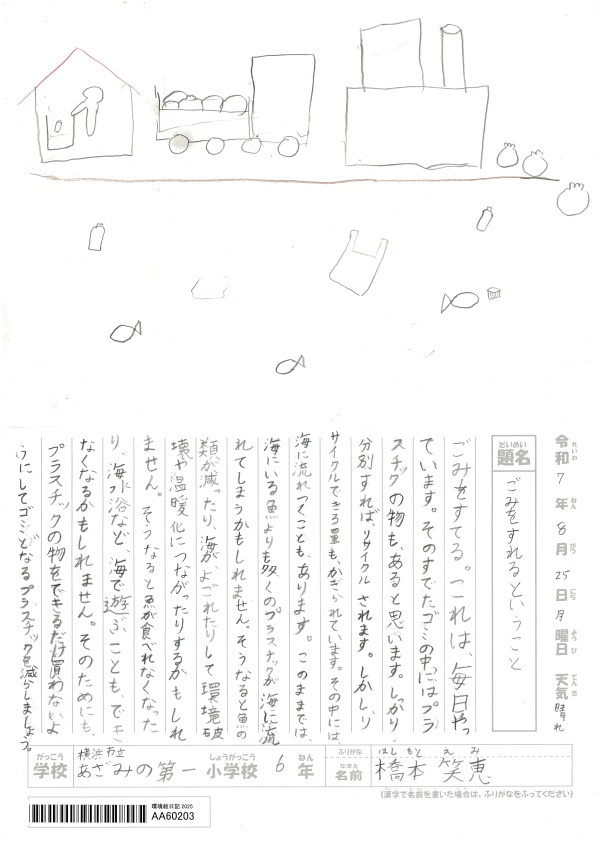 令和7年8月25日月曜日 天気 晴れ
れいわ ねん がつ にち ようび てんき
だいめい
題名
ごみをすれるということ
ごみをすてる。これは、毎日やっ
ています。そのすてたゴミの中にはプラ
スチックの物も、あると思います。しっかり
分別すれば、リサイクルされます。しかし、リ
サイクルできる量も、かぎられています。その中には
海に流れつくことも、あります。このままでは、
海にいる魚よりも多くのプラスチックが海に流
れてしまうかもしれません。そうなると魚の
類が減ったり、海が、よごれたりして環境破
壊や温暖化につながったりするかもしれ
ません。そうなると魚が食べれなくなった
り、海水浴など、海で遊ぶことも、できな
なくなるかもしれません。そのためにも、
プラスチックの物をできるだけ買わないよ
うにしてゴミとなるプラスチックを減らしましょう。
がっこう
学校
横浜市立
あざみの第一
しょうがっこう
小学校
6
ねん
年
ふりがな
はし もと え み
なまえ
名前
橋本 笑恵
(漢字で名前を書いた場合は、ふりがなをふってください)
環境絵日記 2025
AA60203